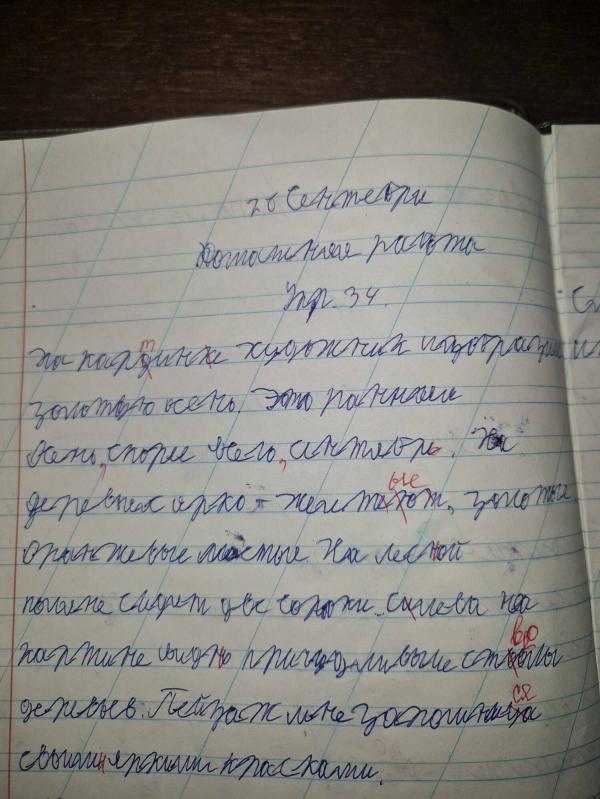 26 Сентебри
Домашнея работа
Упр. 34.
На кардинке художник изобразил
золотую осень. Это ранняя
Осень, скорее всего, сентябрь. На
деревьях ярко-желтые, золотые
Оранжевые листые. На лесной
поляне сидят две сороки. Слева на
картине видны причудливые стволы
деревьев. Пейзаж мне запомнился
своими яркими красками.